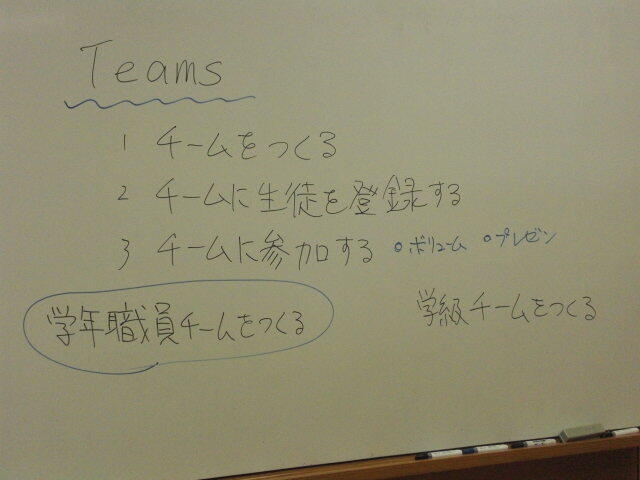 Teams
1 チームをつくる
2 チームに生徒を登録する
3 チームに参加する ○ボリューム ○プレゼン
学年職員チームをつくる 学級チームをつくる